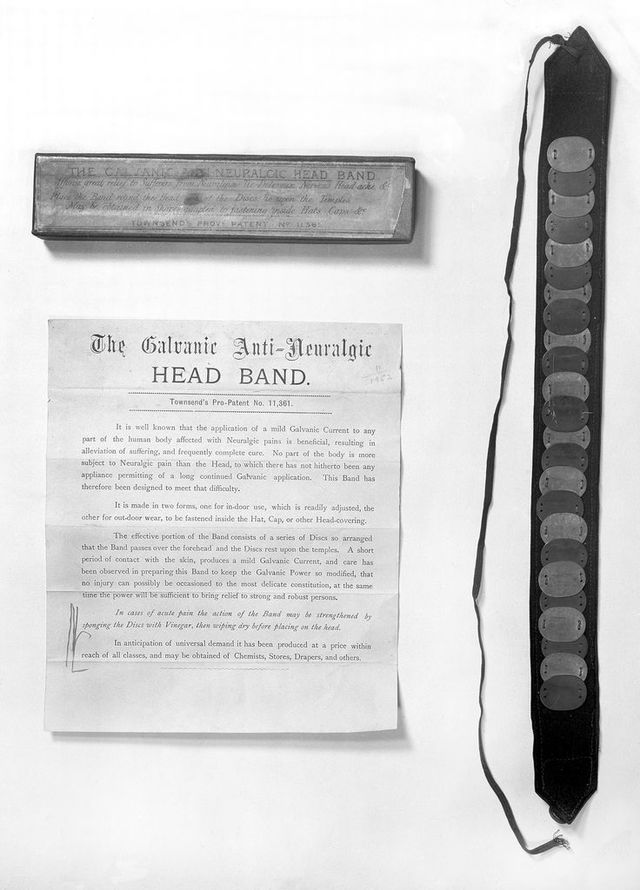 THE GALVANIC ANTI-NEURALGIC HEAD BAND.
Affords great relief to Sufferers from Neuralgia, Tic Doloreux, Nervous Head aches &c
Place the Band round the Head, the Discs to rest upon the Temples.
May be obtained in for fastening inside Hats Caps &c
TOWNSEND'S PROV! PATENT Nº 11,361
The Galvanic Anti-Neuralgic
HEAD BAND.
Townsend's Pro-Patent No. 11,361.
It is well known that the application of a mild Galvanic Current to any
part of the human body affected with Neuralgic pains is beneficial, resulting in
alleviation of suffering, and frequently complete cure. No part of the body is more
subject to Neuralgic pain than the Head, to which there has not hitherto been any
appliance permitting of a long continued Galvanic application. This Band has
therefore been designed to meet that difficulty.
It is made in two forms, one for in-door use, which is readily adjusted, the
other for out-door wear, to be fastened inside the Hat, Cap, or other Head-covering.
The effective portion of the Band consists of a series of Discs so arranged
that the Band passes over the forehead and the Discs rest upon the temples. A short
period of contact with the skin, produces a mild Galvanic Current, and care has
been observed in preparing this Band to keep the Galvanic Power so modified, that
no injury can possibly be occasioned to the most delicate constitution, at the same
time the power will be sufficient to bring relief to strong and robust persons.
In cases of acute pain the action of the Band may be strengthened by
sponging the Discs with Vinegar, then wiping dry before placing on the head.
In anticipation of universal demand it has been produced at a price within
reach of all classes, and may be obtained of Chemists, Stores, Drapers, and others.